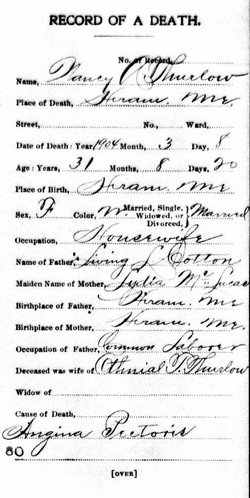 RECORD OF A DEATH.
No. of Record,
Name, Nancy V. Thurlow
Place of Death, Hiram, Me.
Street, No., Ward,
Date of Death: Year, 1904 Month, 3 Day, 8
Age: Years, 31 Months, 8 Days, 20
Place of Birth, Hiram, Me
Sex, F Color, W Married, Single, Widowed, or Divorced, } Married
Occupation, Housewife
Name of Father, Living L Cotton
Maiden Name of Mother, Lydia
Birthplace of Father, Hiram, Me
Birthplace of Mother, Hiram, Me.
Occupation of Father, Common Laborer
Deceased was wife of Othnial T. Thurlow
Widow of
Cause of Death,
Angina Pectoris
80
[OVER]